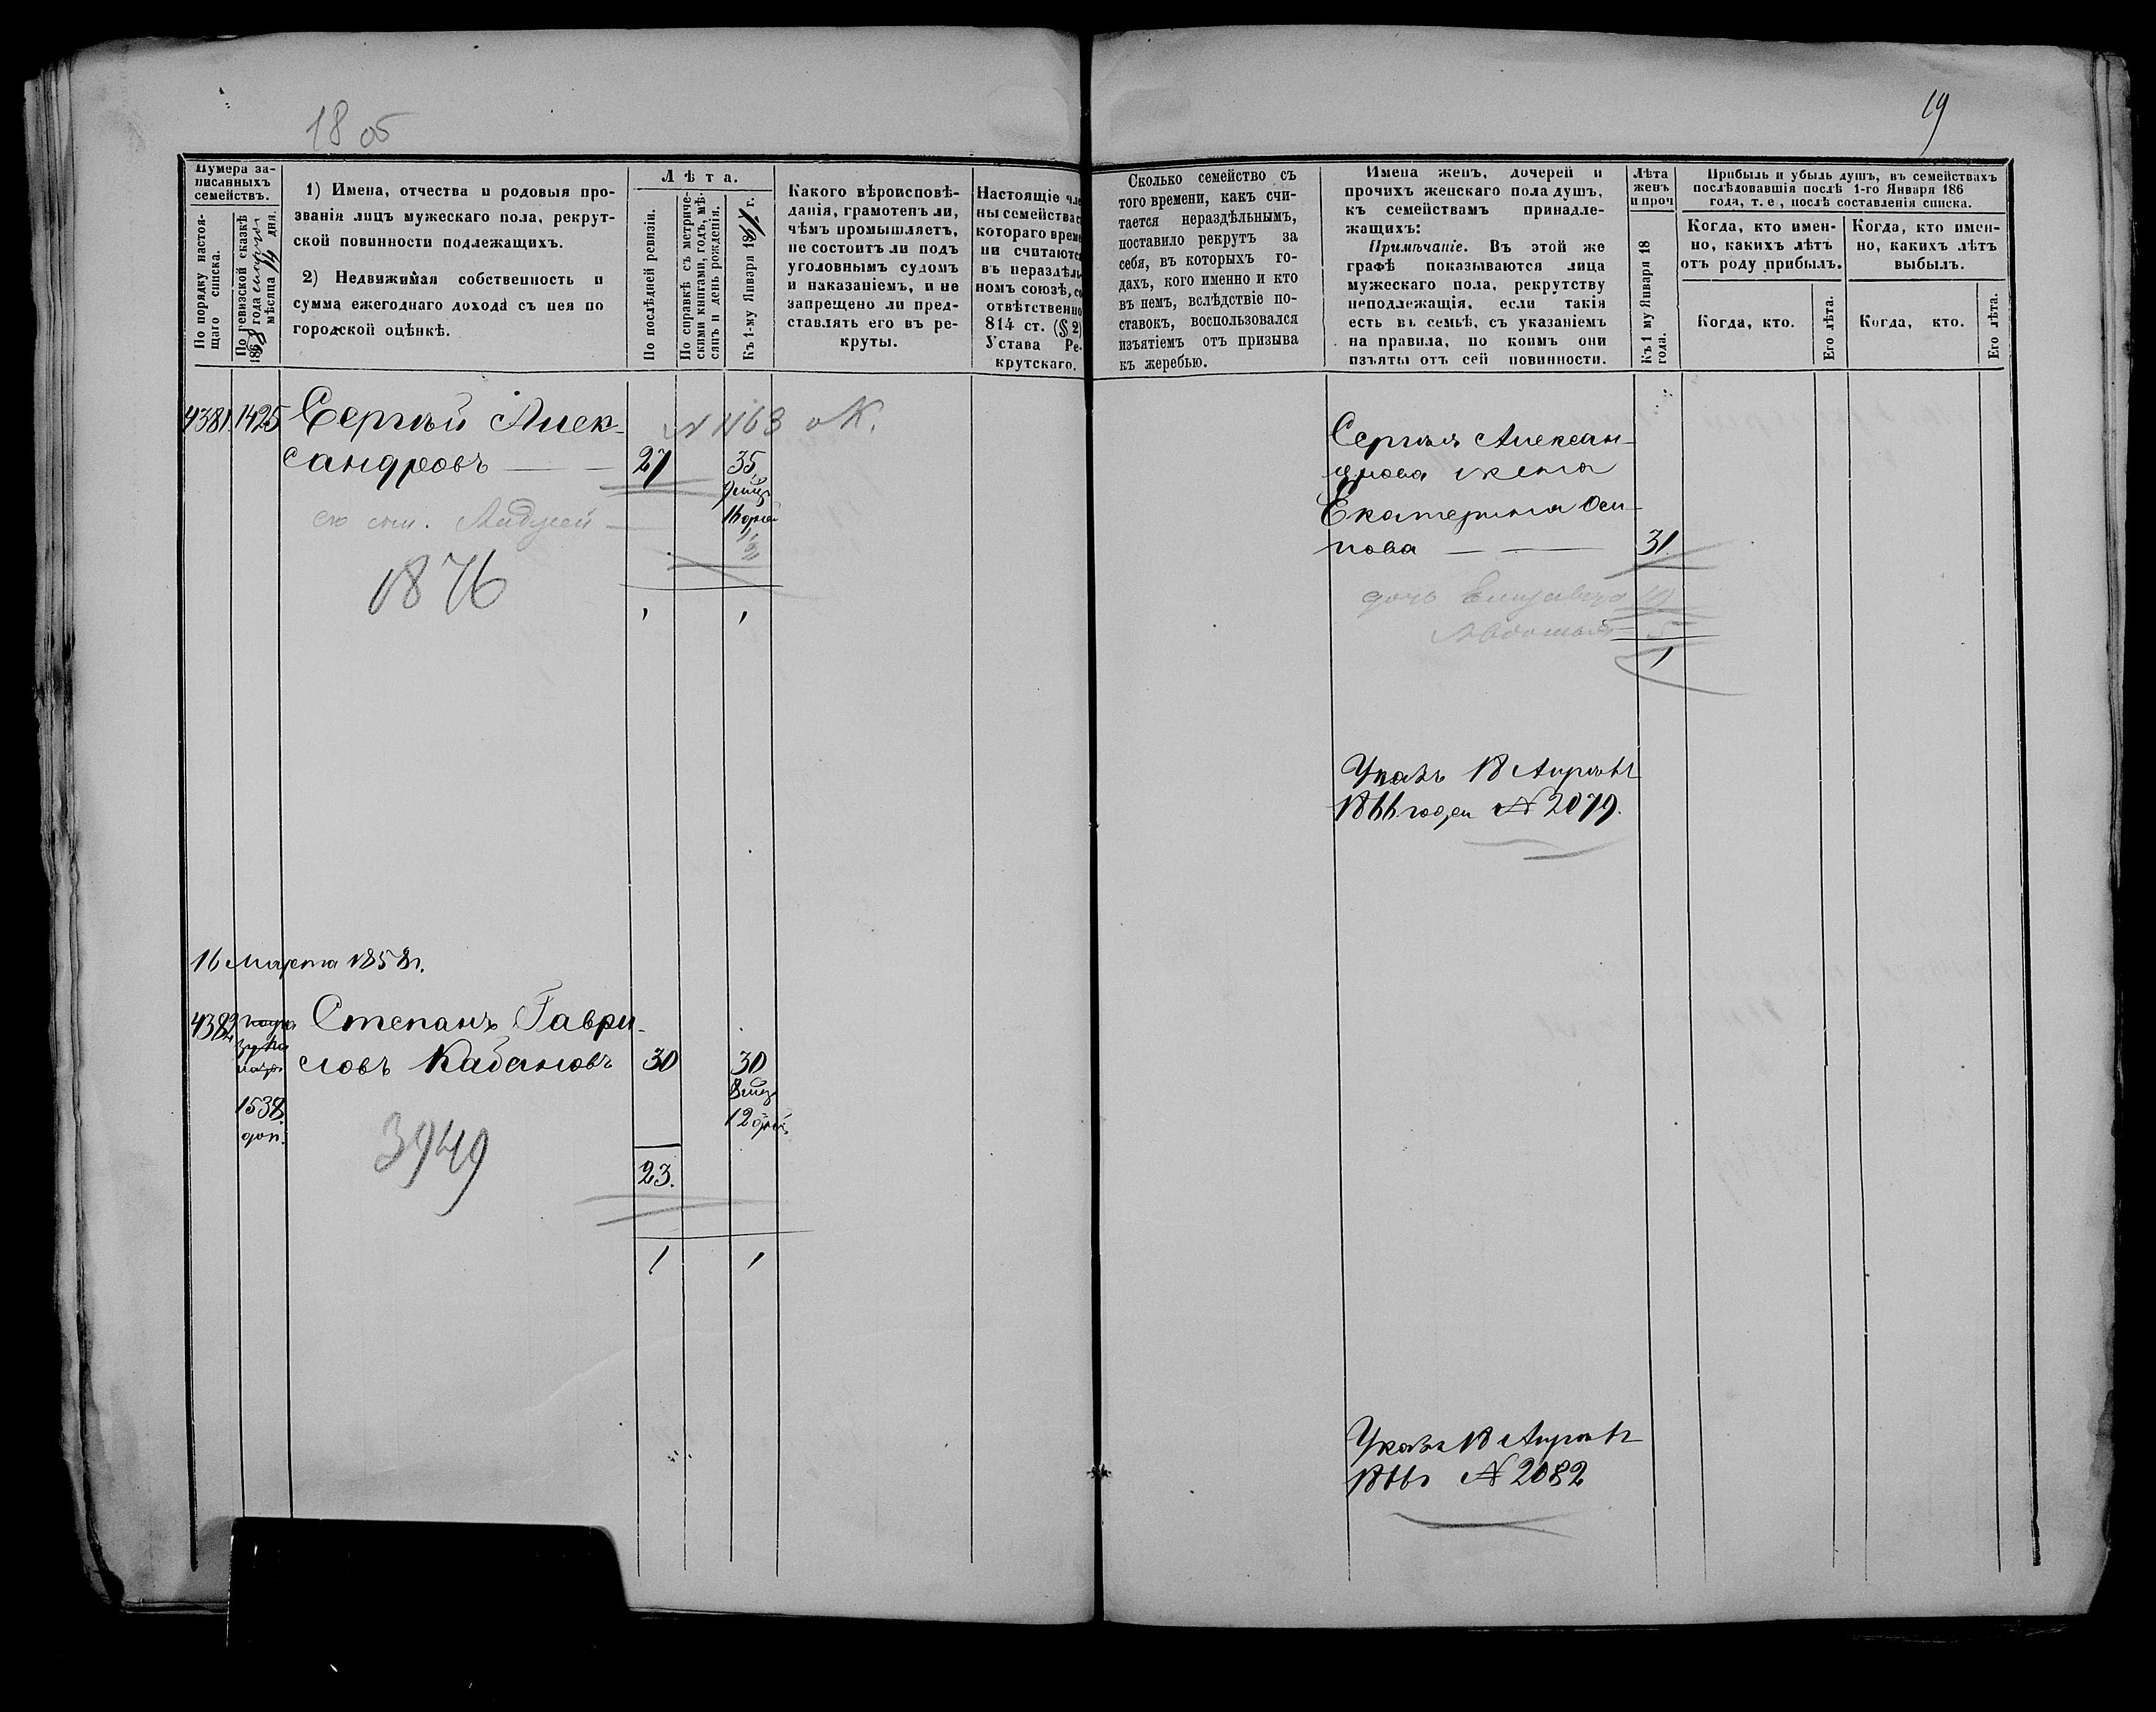 18 об
19
Нумера за-
писанныхъ
семействъ.
По порядку настоя-
щаго списка.
По ревизской сказкѣ
186 года мѣсяца дня.
1) Имена, отчества и родовыя про-
званія лицъ мужескаго пола, рекрут-
ской повинности подлежащихъ.
2) Недвижимая собственность и
сумма ежегоднаго дохода съ нея по
городской оцѣнкѣ.
Лѣта.
По послѣдней ревизіи.
По справкѣ съ метриче-
скими книгами, годъ, мѣ-
сяцъ и день рожденія.
Къ 1-му Января 186 г.
Какого вѣроисповѣ-
данія, грамотенъ ли,
чѣмъ промышляетъ,
не состоитъ ли подъ
уголовнымъ судомъ
и наказаніемъ, и не
запрещено ли пред-
ставлять его въ ре-
круты.
Настоящіе чле
ны семейства с
котораго време
ни считаются
въ нераздѣль
номъ союзѣ, со
отвѣтственно
814 ст. (§ 2)
Устава Ре-
крутскаго.
Сколько семейство съ
того времени, какъ счи-
тается нераздѣльнымъ,
поставило рекрутъ за
себя, въ которыхъ го-
дахъ, кого именно и кто
въ немъ, вслѣдствіе по-
ставокъ, воспользовался
изъятіемъ отъ призыва
къ жеребью.
Имена женъ, дочерей и
прочихъ женскаго пола душъ,
къ семействамъ принадле-
жащихъ:
Примѣчаніе. Въ этой же
графѣ показываются лица
мужескаго пола, рекрутству
неподлежащія, если такія
есть въ семьѣ, съ указаніемъ
на правила, по коимъ они
изъяты отъ сей повинности.
Лѣта
женъ
и проч
Къ 1 му Января 18
года.
Прибыль и убыль душъ, въ семействахъ
послѣдовавшія послѣ 1-го Января 186
года, т. е., послѣ составленія списка.
Когда, кто имен-
но, какихъ лѣтъ
отъ роду прибылъ.
Когда, кто имен-
но, какихъ лѣтъ
выбылъ.
Когда, кто.
Его лѣта.
Когда, кто.
Его лѣта.
4381. 1425 Сергѣй Алек-
сандровъ 27 35
№ 1163
1876
1 1
Сергѣя Алексан-
дрова жена
Екатерина Оси-
пова 31
дочь Елизавета
Авдотья 5
1
Указъ 18 Апрѣля
1866 года № 2079.
16 Марта 1858 г.
4382 Степанъ Гаври-
ловъ Кабановъ 30 30
8 мѣц
12 дней
1538
доп.
3949
23.
1 1
Указъ 18 Апрѣля
1866 г № 2082